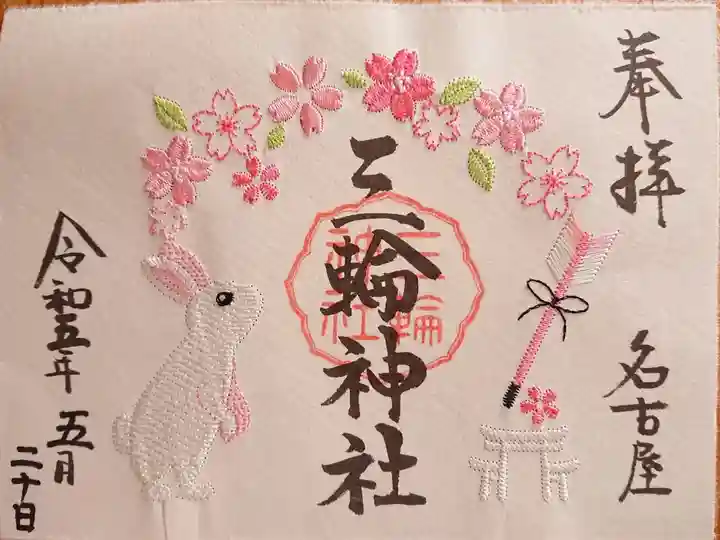 奉拝
名古屋
三輪神社
三輪
神社
令和五年 五月
二十日